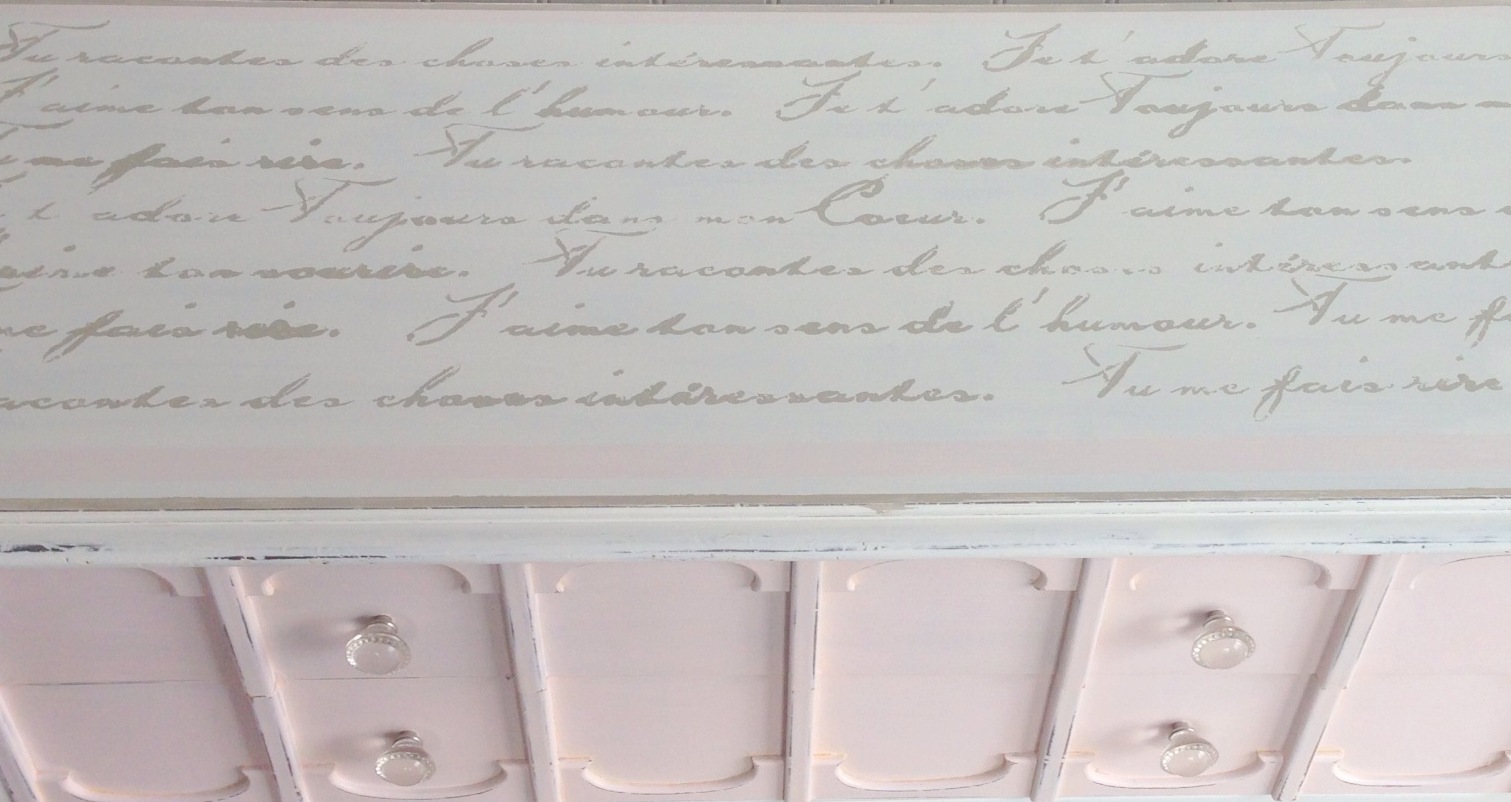 Tu racontes des choses intéressantes. Je t'adore Toujours
J'aime ton sens de l'humour. Je t'adore Toujours dans
me fais rire. Tu racontes des choses intéressantes.
t'adore Toujours dans mon Coeur. J'aime ton sens
ton sourire. Tu racontes des choses
me fais rire. J'aime ton sens de l'humour. Tu me
des choses intéressantes. Tu me fais rire